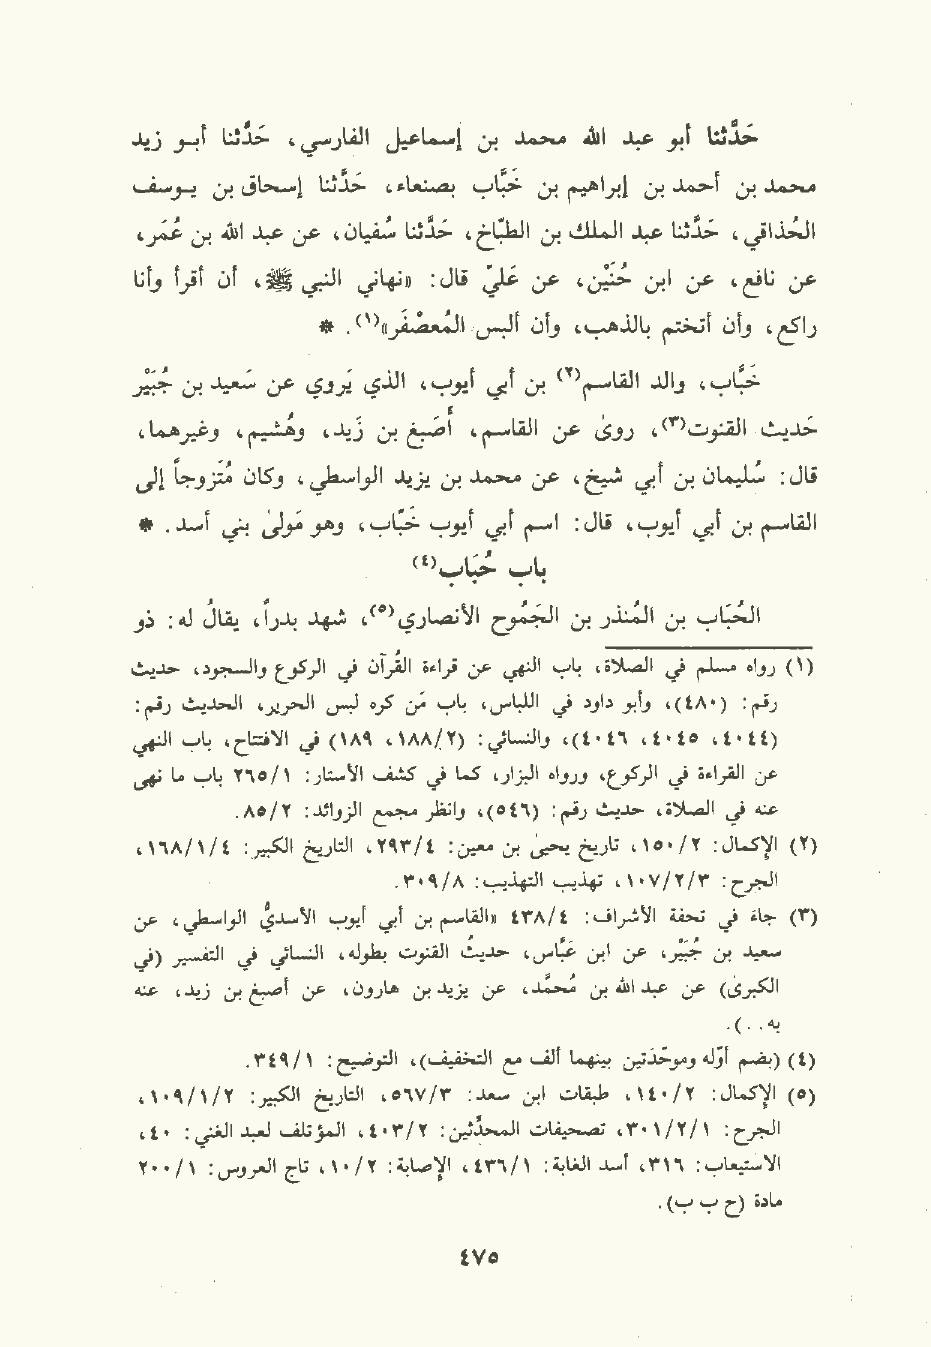 حَدَّثنا أبو عبد الله محمد بن إسماعيل الفارسي، حَدَّثنا أبو زيد
محمد بن أحمد بن إبراهيم بن خَبَّاب بصنعاء، حَدَّثنا إسحاق بن يوسف
الحُذاقي، حَدَّثنا عبد الملك بن الطبّاخ، حَدَّثنا سُفيان، عن عبد الله بن عُمَر،
عن نافع، عن ابن حُنَيْن، عن عَليّ قال: «نهاني النبي ﷺ، أن أقرأ وأنا
راكع، وأن أتختم بالذهب، وأن ألبس المُعصْفَر»(١). *
خَبَّاب، والد القاسم(٢) بن أبي أيوب، الذي يَروي عن سَعيد بن جُبَيْر
حَديث القنوت(٣)، روىٰ عن القاسم، أصَبغ بن زَيد، وهُشَيم، وغيرهما،
قال: سُليمان بن أبي شيخ، عن محمد بن يزيد الواسطي، وكان مُتَزوجاً إلى
القاسم بن أبي أيوب، قال: اسم أبي أيوب خَبَّاب، وهو مَولىٰ بني أسد. *
باب حُبَاب(٤)
الحُبَاب بن المُنذر بن الجَمُوح الأنصاري(٥)، شهد بدراً، يقالُ له: ذو
(١) رواه مسلم في الصلاة، باب النهي عن قراءة القُرآن في الركوع والسجود، حديث
رقم: (٤٨٠)، وأبو داود في اللباس، باب مَن كره لبس الحرير، الحديث رقم:
(٤٠٤٤، ٤٠٤٥، ٤٠٤٦)، والنسائي: (١٨٨/٢، ١٨٩) في الافتتاح، باب النهي
عن القراءة في الركوع، ورواه البزار، كما في كشف الأستار: ٢٦٥/١ باب ما نهى
عنه في الصلاة، حديث رقم: (٥٤٦)، وانظر مجمع الزوائد: ٨٥/٢.
(٢) الإكمال: ١٥٠/٢، تاريخ يحيىٰ بن معين: ٢٩٣/٤، التاريخ الكبير: ١٦٨/١/٤،
الجرح: ١٠٧/٢/٣، تهذيب التهذيب: ٣٠٩/٨.
(٣) جاء في تحفة الأشراف: ٤٣٨/٤ «القاسم بن أبي أيوب الأسديّ الواسطي، عن
سعيد بن جُبَيْر، عن ابن عَبَّاس، حديثُ القنوت بطوله، النسائي في التفسير (في
الكبرىٰ) عن عبد الله بن مُحمَّد، عن يزيد بن هارون، عن أصبغ بن زيد، عنه
به. . ).
(٤) (بضم أوّله وموحّدَتين بينهما ألف مع التخفيف)، التوضيح: ٣٤٩/١.
(٥) الإكمال: ١٤٠/٢، طبقات ابن سعد: ٥٦٧/٣، التاريخ الكبير: ١٠٩/١/٢،
الجرح: ٣٠١/٢/١، تصحيفات المحدِّثين: ٤٠٣/٢، المؤتلف لعبد الغني: ٤٠،
الاستيعاب: ٣١٦، أسد الغابة: ٤٣٦/١، الإصابة: ١٠/٢، تاج العروس: ٢٠٠/١
مادة (ح ب ب).
٤٧٥